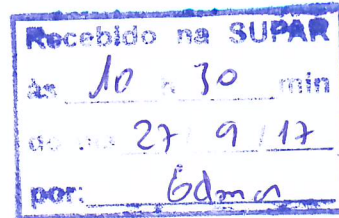 Recebido na SUPAR
às 10 h 30 min
do dia 27/ 9 /17
por: Edmar